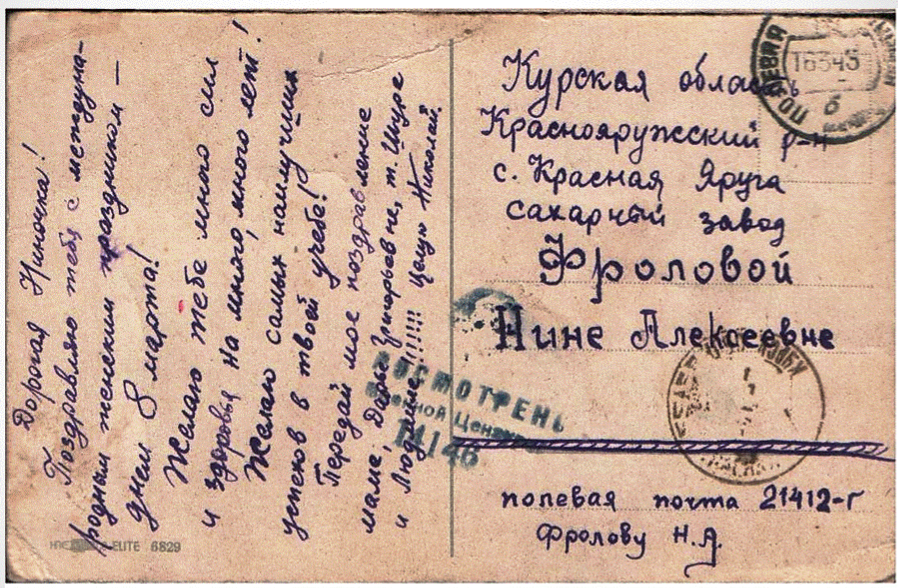 Дорогая Ниночка!
Поздравляю тебя с междуна-
родным женским праздником —
днем 8 марта!
Желаю тебе много сил
и здоровья на много, много лет!
Желаю самых наилучших
успехов в твоей учебе!
Передай мое поздравление
маме, Дарье Григорьевне, т. Шуре
и Людмиле!!!!!! Целую Николай.
ELITE 6829
Курская область
Краснояружский р-н
с. Красная Яруга
сахарный завод
Фроловой
Нине Алексеевне
полевая почта 21412-г
Фролову Н.А.
ПОЛЕВАЯ
16345
б
ПРОСМОТРЕНО
Военной Цензурой
14146